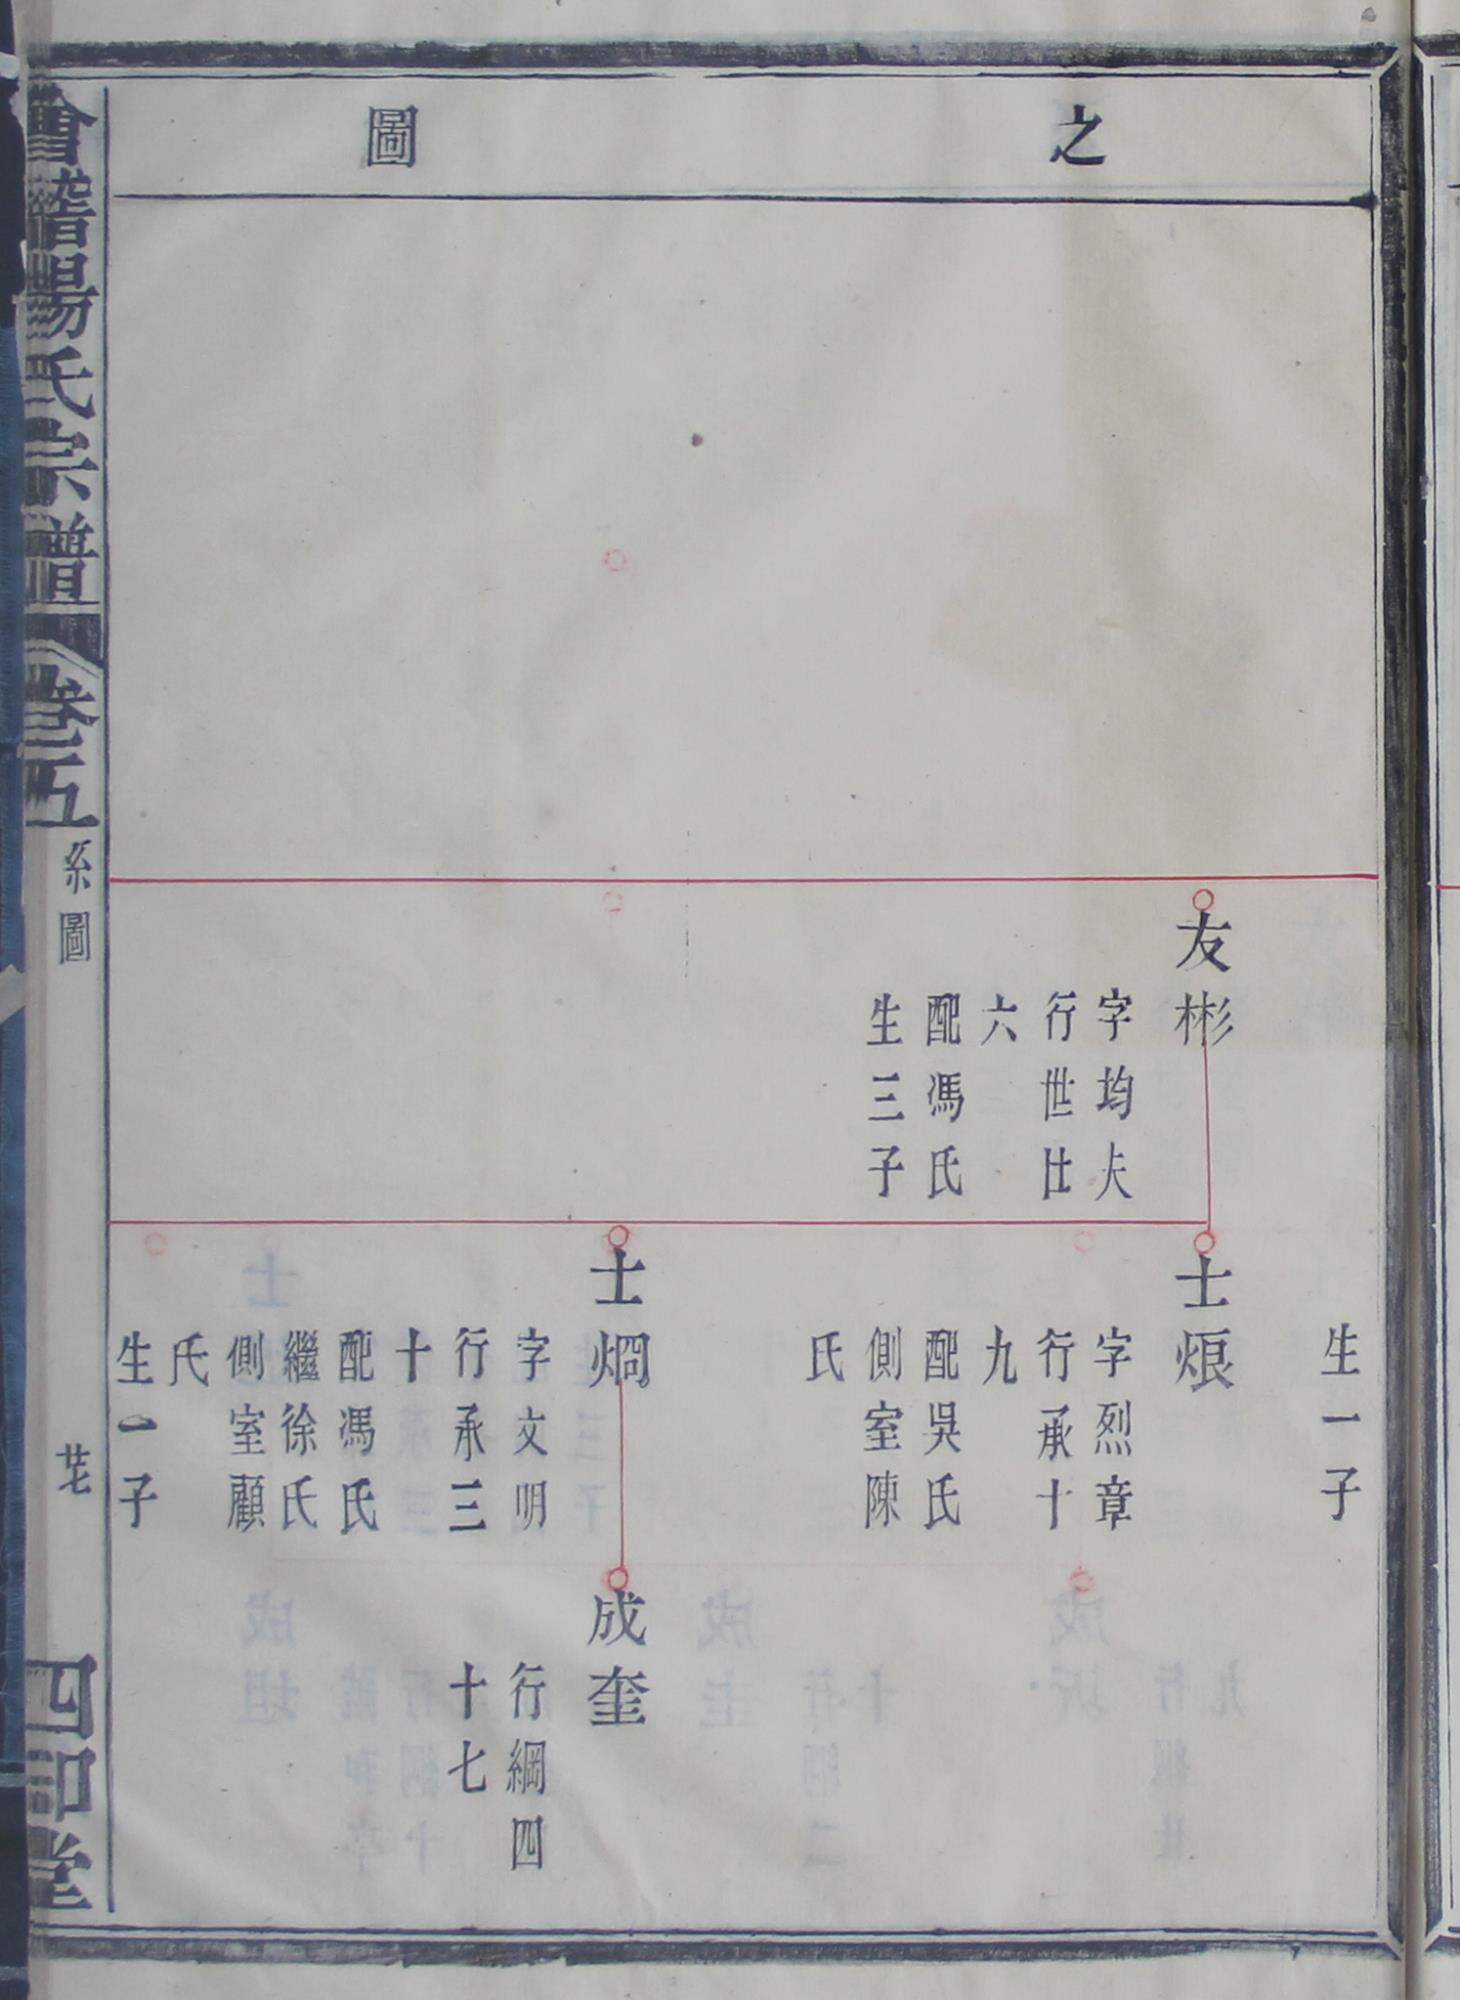 之圖
生一子
友彬
字均夫
行世廿
六
配馮氏
生三子
士烺
字烈章
行承十
九
配吳氏
側室陳
氏
士烱
字文明
行承三
十
配馮氏
繼徐氏
側室顧
氏
生一子
成奎
行綱四
十七
會稽楊氏宗譜
卷五
系圖
四知堂